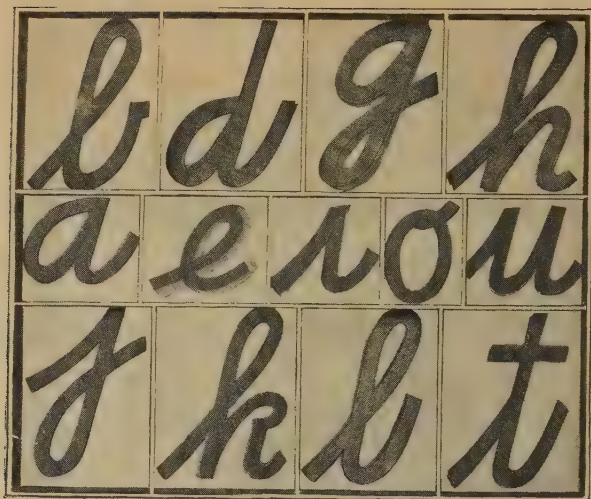 b d g h
a e ı o u
j k l t